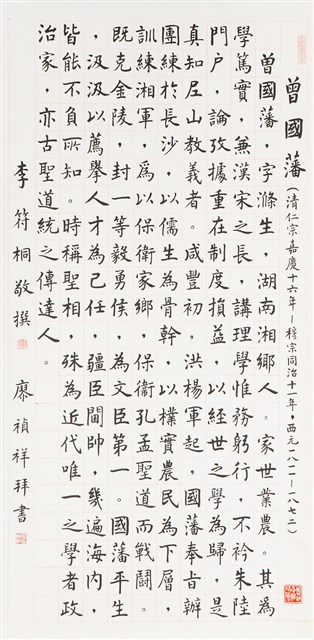 曾國藩（清仁宗嘉慶十六年－穆宗同治十一年，西元一八一一－一八七二）
曾國藩，字滌生，湖南湘鄉人。家世業農。其為
學篤實，兼漢宋之長，講理學惟務躬行，不衿朱陸
門戶，論攷據重在制度損益，以經世之學為歸，是
真知尼山教義者。咸豐初，洪楊軍起，國藩奉旨辦
團練於長沙，以儒生為骨幹，以樸實農民為下層，
訓練湘軍，為以保衛家鄉，保衛孔孟聖道而戰鬪。
既克金陵，封一等毅勇侯，為文臣第一。國藩平生
，汲汲以薦舉人才為己任，疆臣閫帥，幾遍海內，
皆能不負所知。時稱聖相，殊為近代唯一之學者政
治家，亦古聖道統之傳達人。
李符桐敬撰　廖禎祥拜書